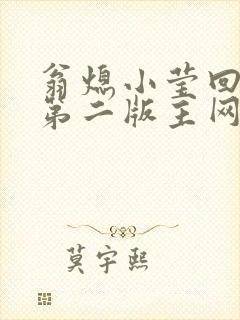 翁熄小莹回
第二版主网
莫宇熙